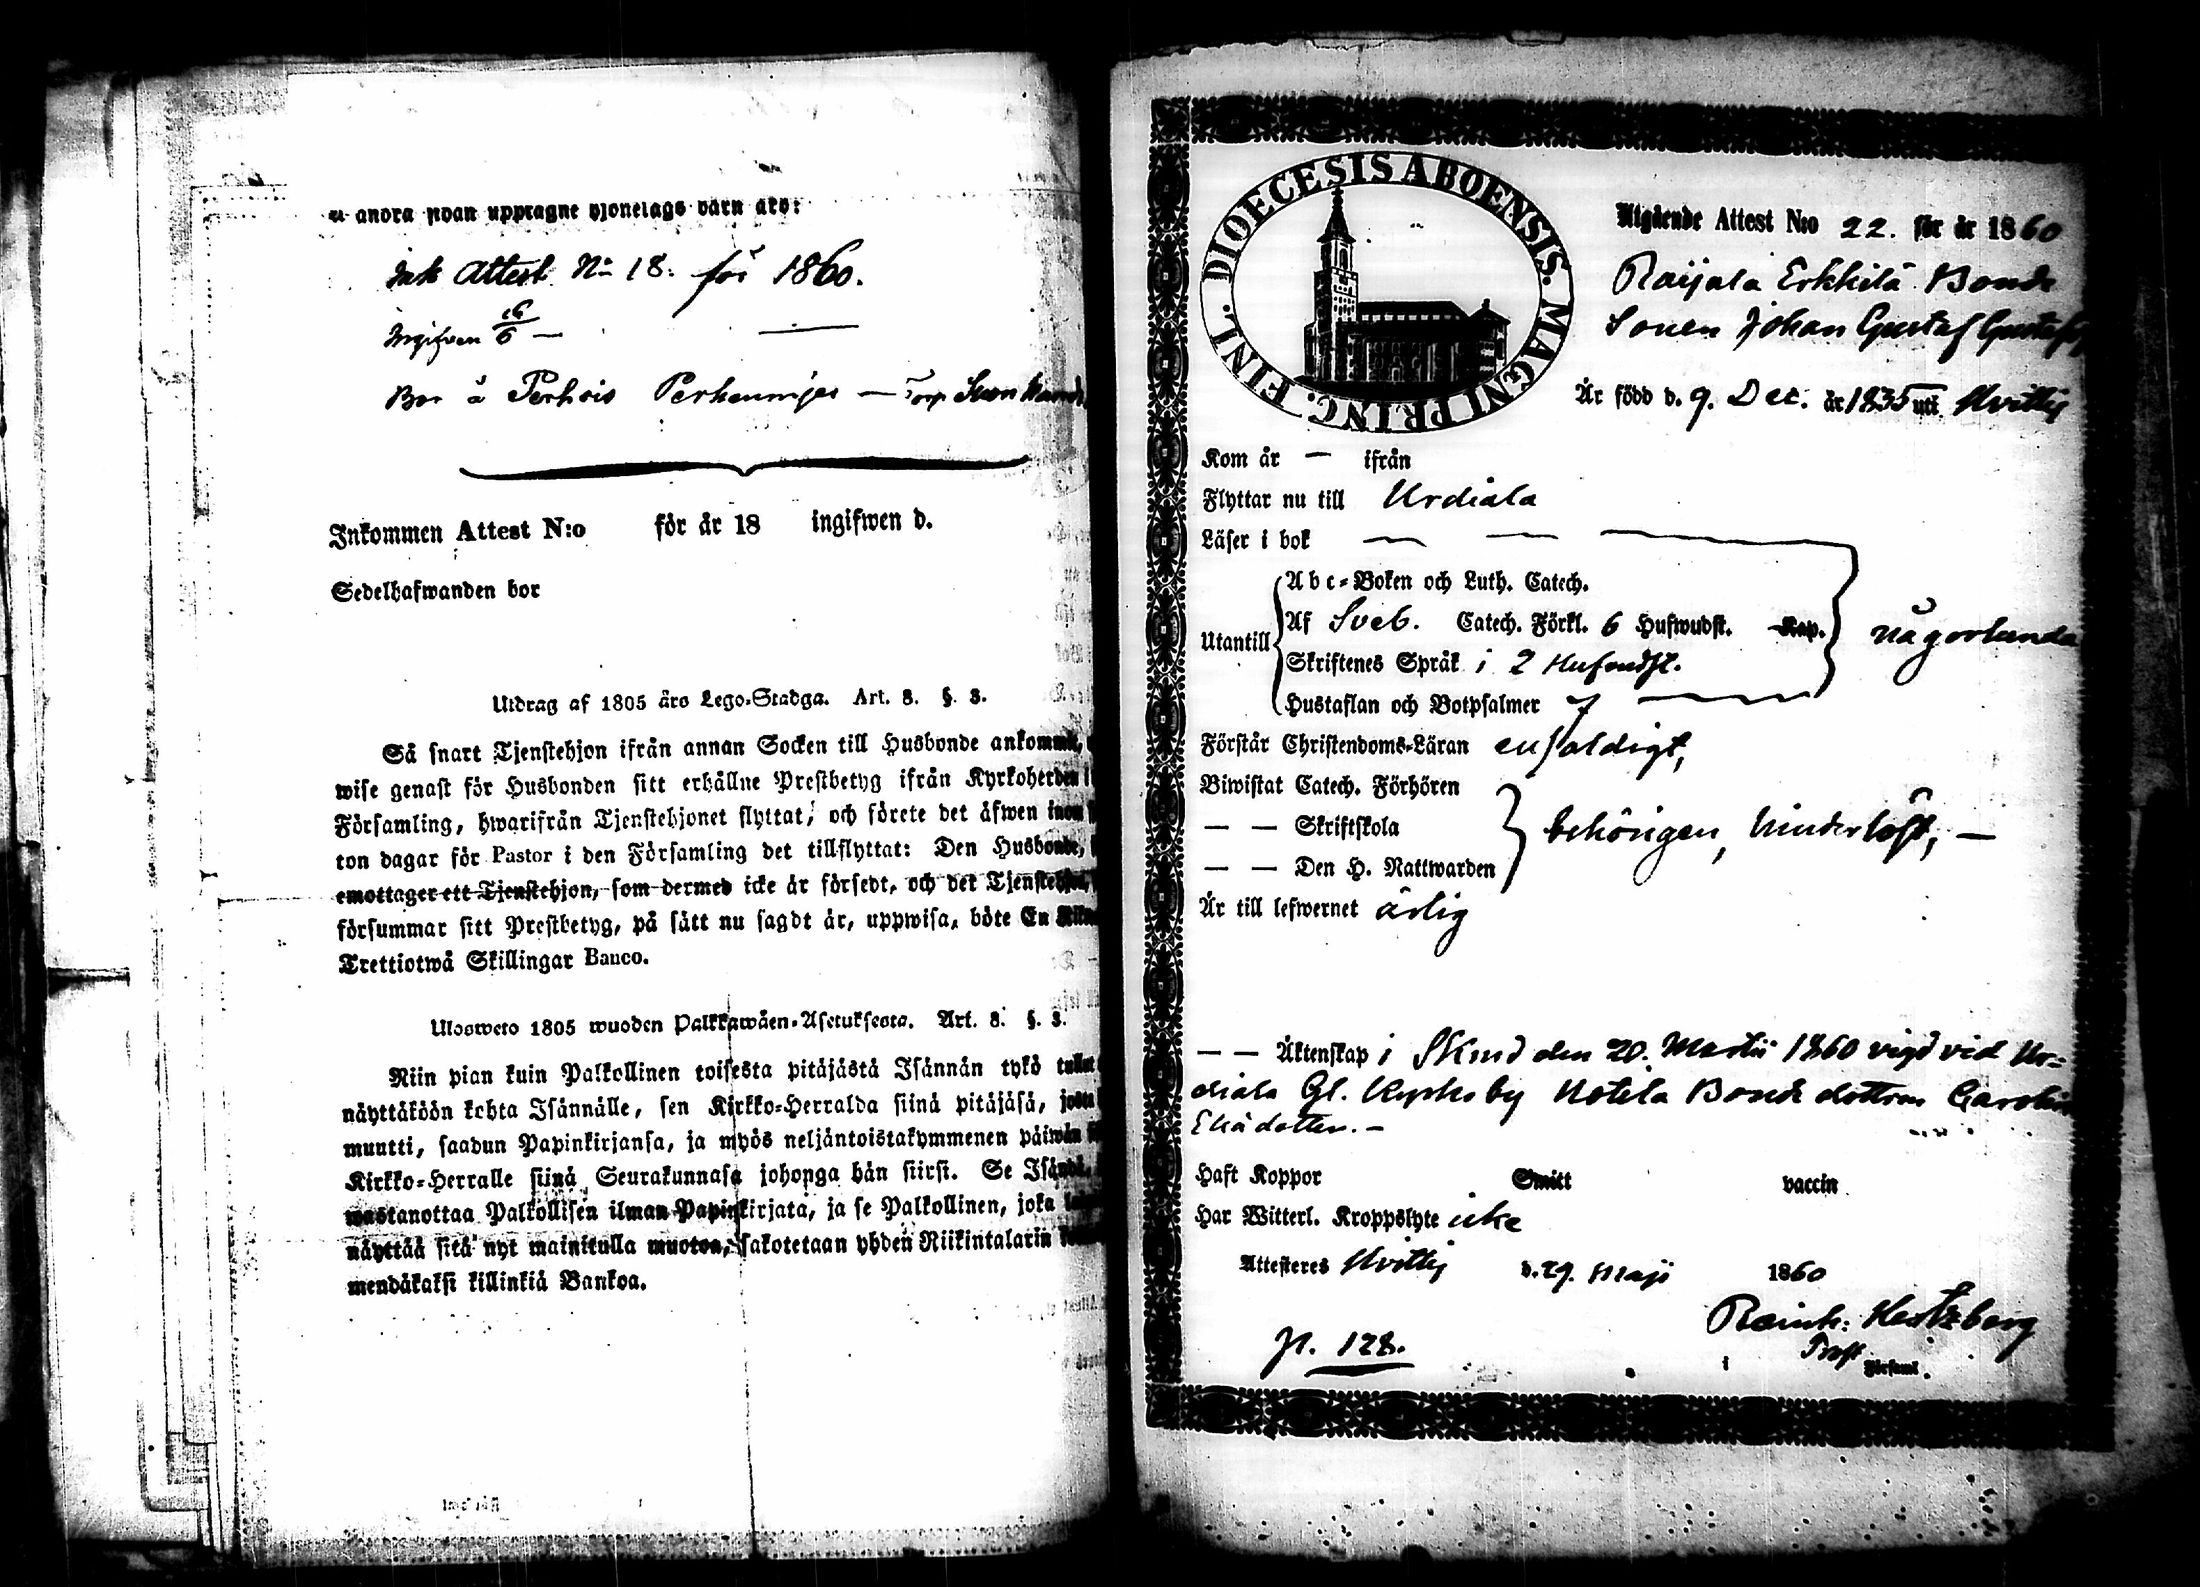 å andra sydan upptagne hjonelags barn äro:
Ink Attest No 18. för 1860.
Ingifven 16/6 —
Bor å Perhois Perheunijes — Torp
Inkommen Attest N:o för år 18 ingifwen d.
Sedelhafwanden bor
Utdrag af 1805 års Lego-Stadga. Art. 8. §. 3.
Så snart Tjenstehjon ifrån annan Socken till Husbonde ankommit,
wise genast för Husbonden sitt erhållne Prestbetyg ifrån Kyrkoherden i
Församling, hwarifrån Tjenstehjonet flyttat, och förete det äfwen inom
ton dagar för Pastor i den Församling det tillflyttat: Den Husbonde,
emottager ett Tjenstehjon, som dermed icke är försedt, och det Tjenstehjon,
försummar sitt Prestbetyg, på sätt nu sagdt är, uppwisa, böte En
Trettiotwå Skillingar Banco.
Ulosweto 1805 wuoden Palkkawäen-Asetuksesta. Art. 8. §. 3.
Niin pian kuin Palkollinen toisesta pitäjästä Isännän tykö tullut
näyttäköön kohta Isännälle, sen Kirkko-Herralda siinä pitäjäsä, josta
muutti, saadun Papinkirjansa, ja myös neljäntoistakymmenen päiwän
Kirkko-Herralle siinä Seurakunnasa johonga hän siirsi. Se Isändä,
wastanottaa Palkollisen ilman Papinkirjata, ja se Palkollinen, joka
näyttää sitä nyt mainitulla muoton, sakotetaan yhden Riikintalarin
mendäkaksi killinkiä Bankoa.
DIOECESIS ABOENSIS. MAGNI PRINC. FINL.
Utgående Attest N:o 22. för år 1860
Raijala Erkkilä Bonde
Sonen Johan Gustaf
Är född d. 9. Dec. år 1835 uti Hvittis
Kom år — ifrån
Flyttar nu till Urdiala
Läser i bok
Abc-Boken och Luth. Catech.
Utantill Af Sveb. Catech. Förkl. 6 Hufwudst. Kap. någorlunda
Skriftenes Språk i 2 Hufvudst.
Hustaflan och Botpsalmer 7
Förstår Christendoms-Läran enfaldigt,
Biwistat Catech. Förhören
— — Skriftskola behörigen, hinderlöst, —
— — Den H. Nattwarden
Är till lefwernet ärlig
— — Äktenskap i den 20. Martii 1860 vigd vid Ur=
diala Gl. Kyrkoby Notila Bonde dottren Carolina
Eliädotter. —
Haft Koppor Smitt vaccin
Har Witterl. Kroppslyte icke
Attesteres Hvittis d. 29. Maji 1860
Reinh: Hertzberg
p. 128. Prost
i Församl.